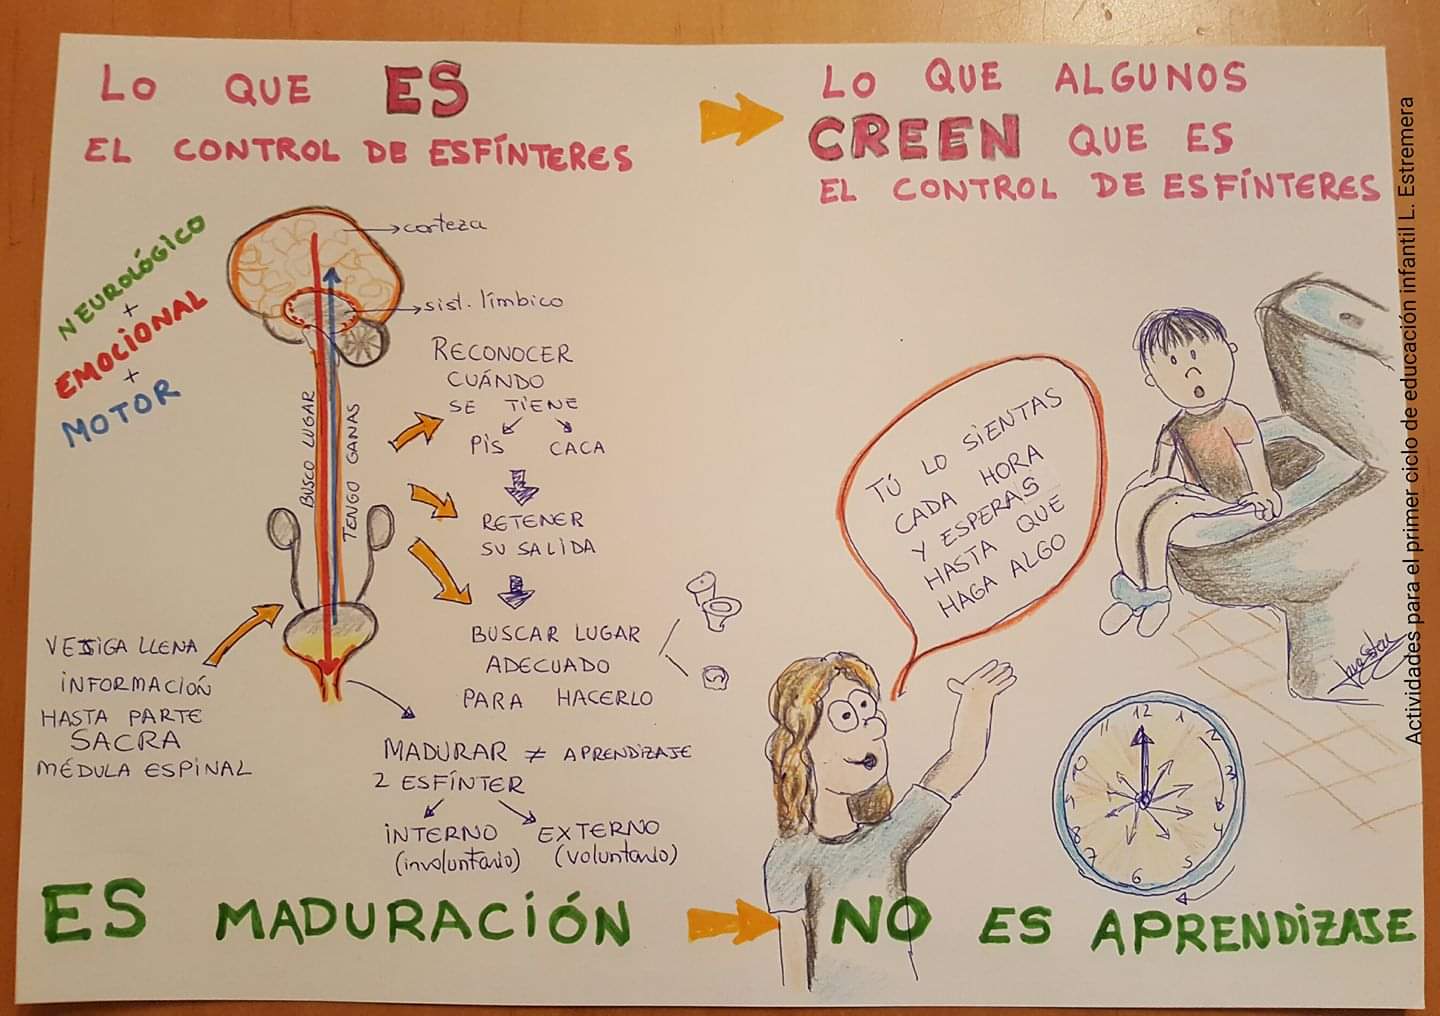 LO QUE ES
EL CONTROL DE ESFÍNTERES
NEUROLÓGICO
+
EMOCIONAL
+
MOTOR
corteza
sist. límbico
BUSCO LUGAR
TENGO GANAS
RECONOCER
CUÁNDO
SE TIENE
PIS CACA
RETENER
SU SALIDA
BUSCAR LUGAR
ADECUADO
PARA HACERLO
VEJIGA LLENA
INFORMACIÓN
HASTA PARTE
SACRA
MÉDULA ESPINAL
MADURAR ≠ APRENDIZAJE
2 ESFÍNTER
INTERNO EXTERNO
(involuntario) (voluntario)
ES MADURACIÓN
LO QUE ALGUNOS
CREEN QUE ES
EL CONTROL DE ESFÍNTERES
TÚ LO SIENTAS
CADA HORA
Y ESPERAS
HASTA QUE
HAGA ALGO
12
1
2
3
4
5
6
7
8
9
10
NO ES APRENDIZAJE
Actividades para el primer ciclo de educación infantil L. Estremera